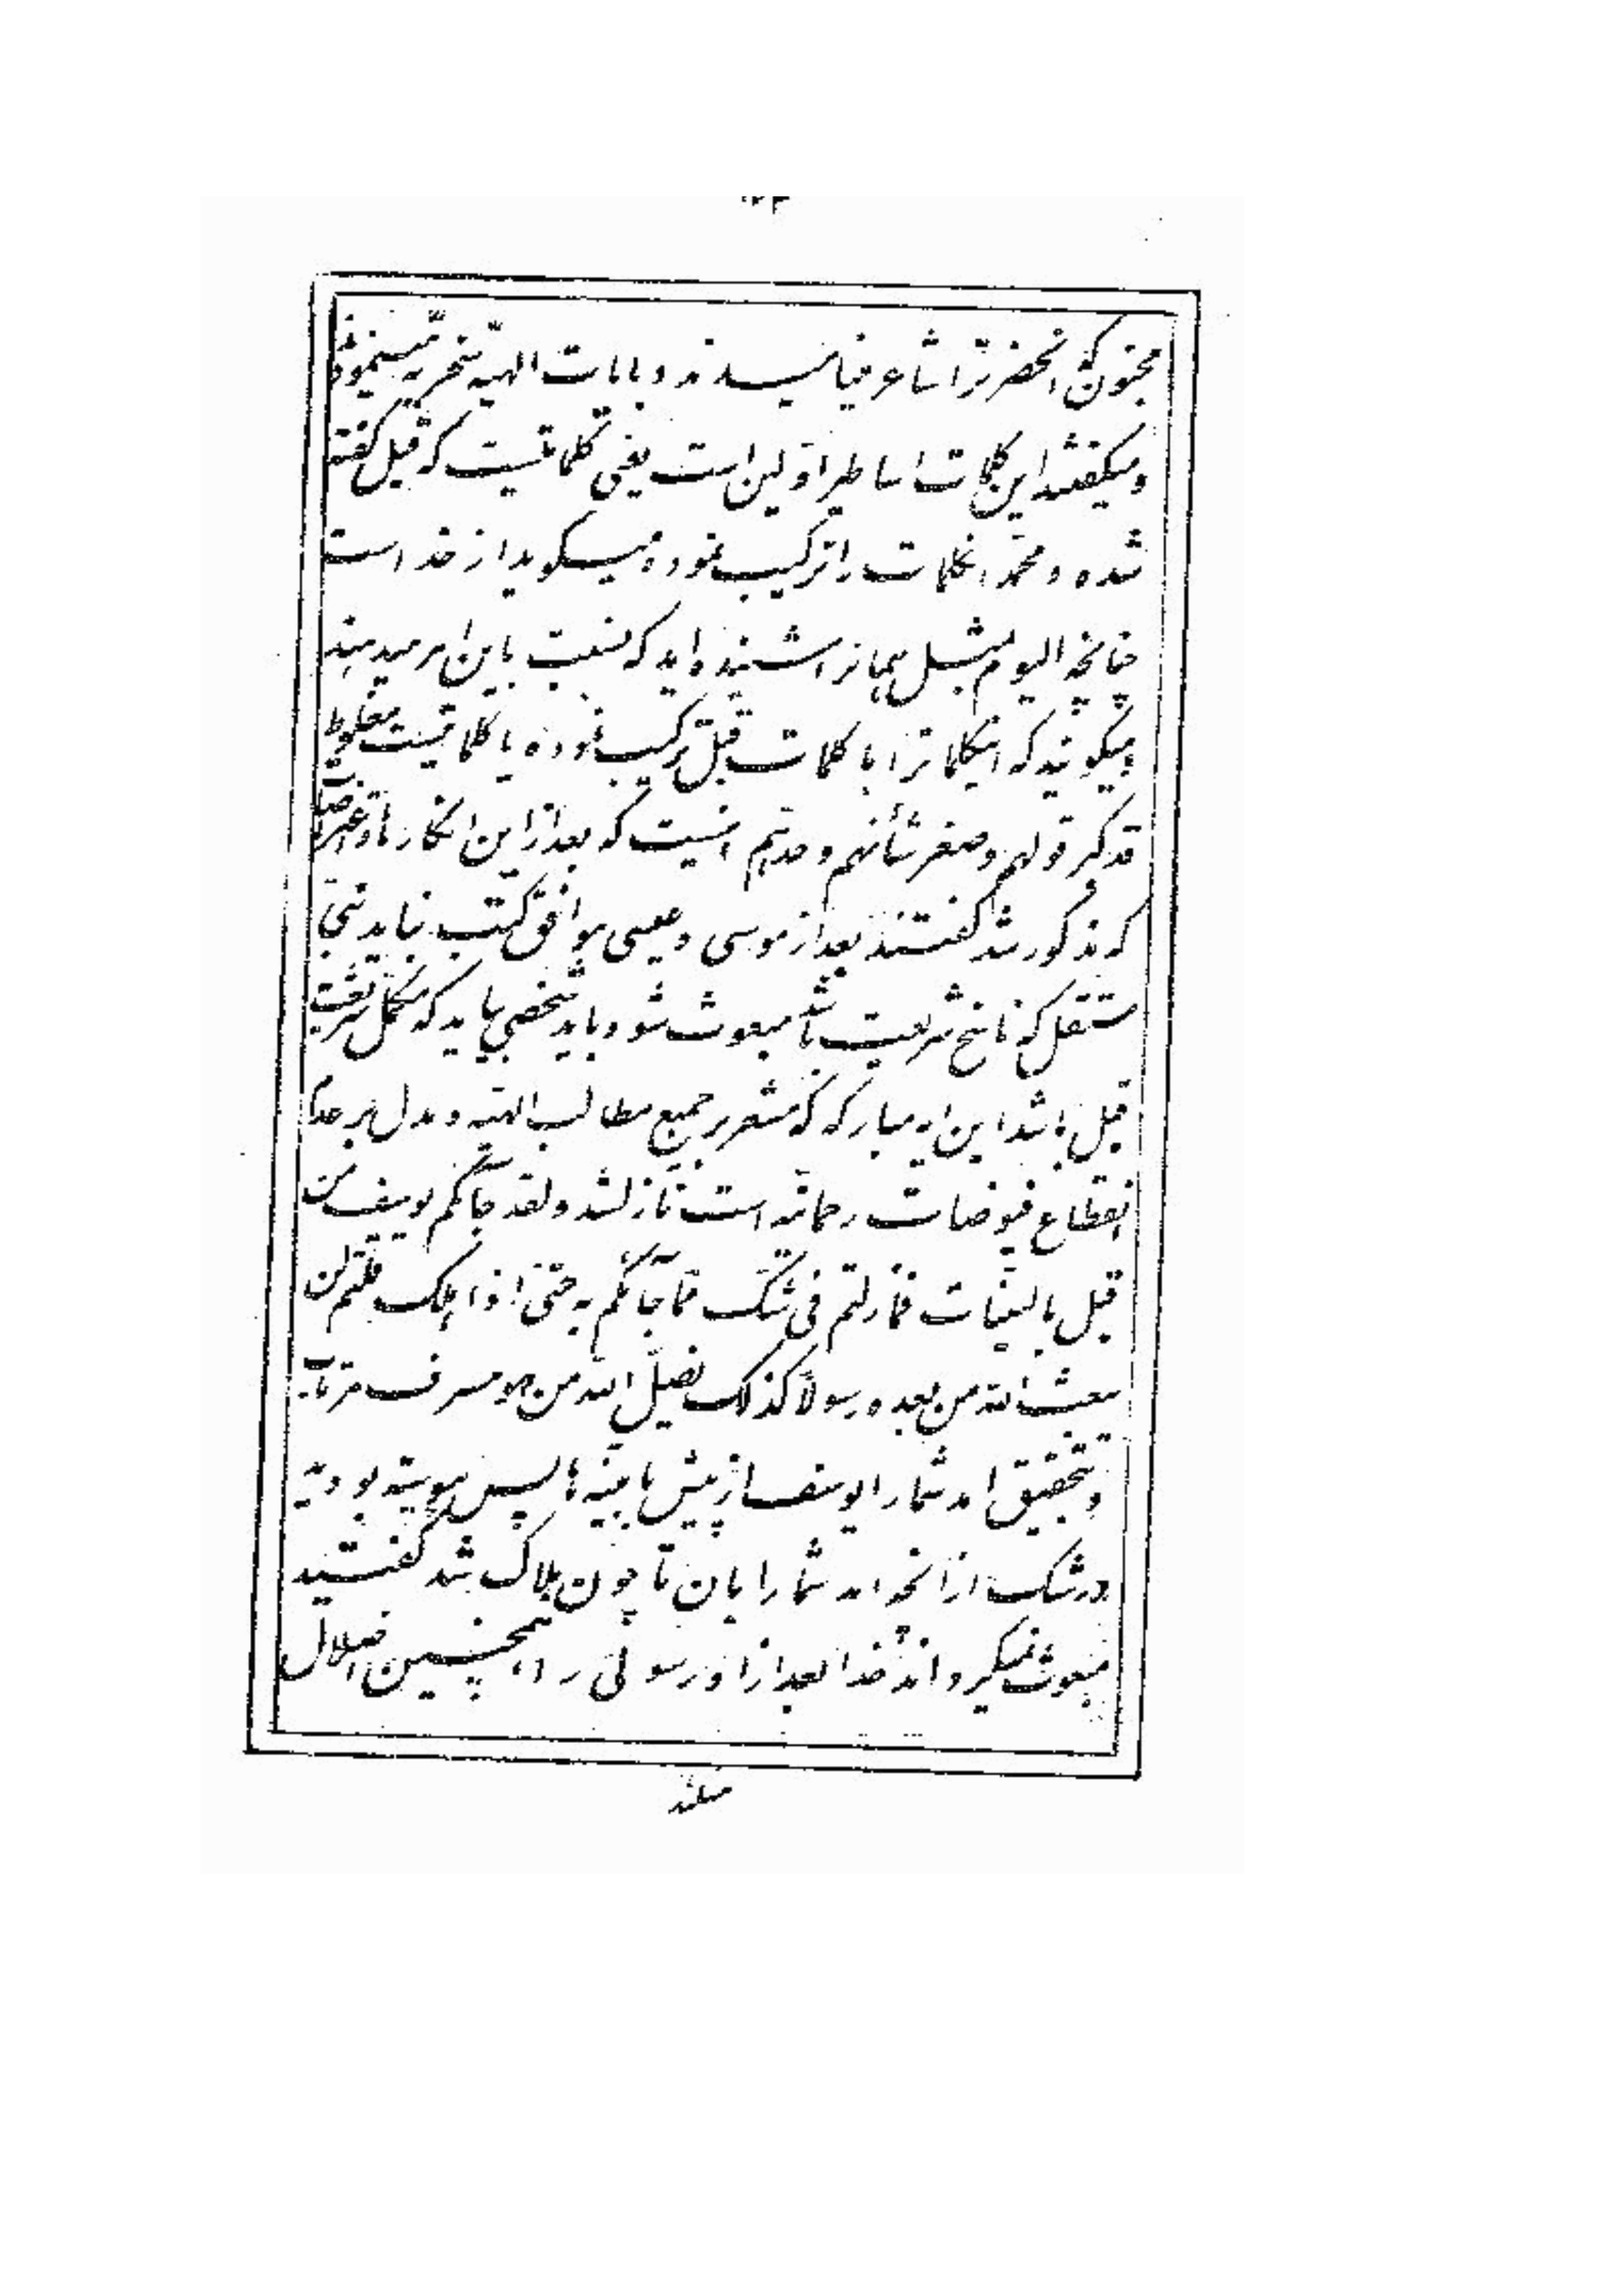 مجنون که انحضرترا شاعر مینامیدند و بایات الهیه سخریه مینمودند
و میگفتند این کلمات اساطیر اوّلین است یعنی کلماتیست که قبل گفته
شده و محمّد انکلمات را ترکیب نموده میگوید از خداست
چنانچه الیوم مثل همانرا شنیده‌اید که نسبت باین امر میدهند
و میگویند که اینکلماترا با کلمات قبل ترکیب نموده یا کلماتیست مغلوط
قد کبر قولهم و صغر شأنهم و حدّهم انیست که بعد از این انکارها و اعتراضات
که مذکور شد گفتند بعد از موسی و عیسی موافق کتب نباید نبیّ
مستقل که ناسخ شریعت باشد مبعوث شود باید شخصی بیاید که مکمّل شریعت
قبل باشد این ایه مبارکه که مشعر بر جمیع مطالب الهیّه و مدل بر عدم
انقطاع فیوضات رحمانیّه است نازلشد و لقد جآئکم یوسف من
قبل بالبیّنات فمازلتم فی شکّ ممّا جآئکم به حتّی اذا هلک قلتم لن
یبعث الله من بعده رسولاً کذلک یضلّ الله من هو مسرف مرتاب
و بتحقیق امد شما را یوسف از پیش با بیّنه‌ها پس پیوسته بودید
در شک از انچه امد شما را بان تا چون هلاک شد گفتید
مبعوث نمیگرداند خدا بعد از او رسولی را، همچنین اضلال
میکند